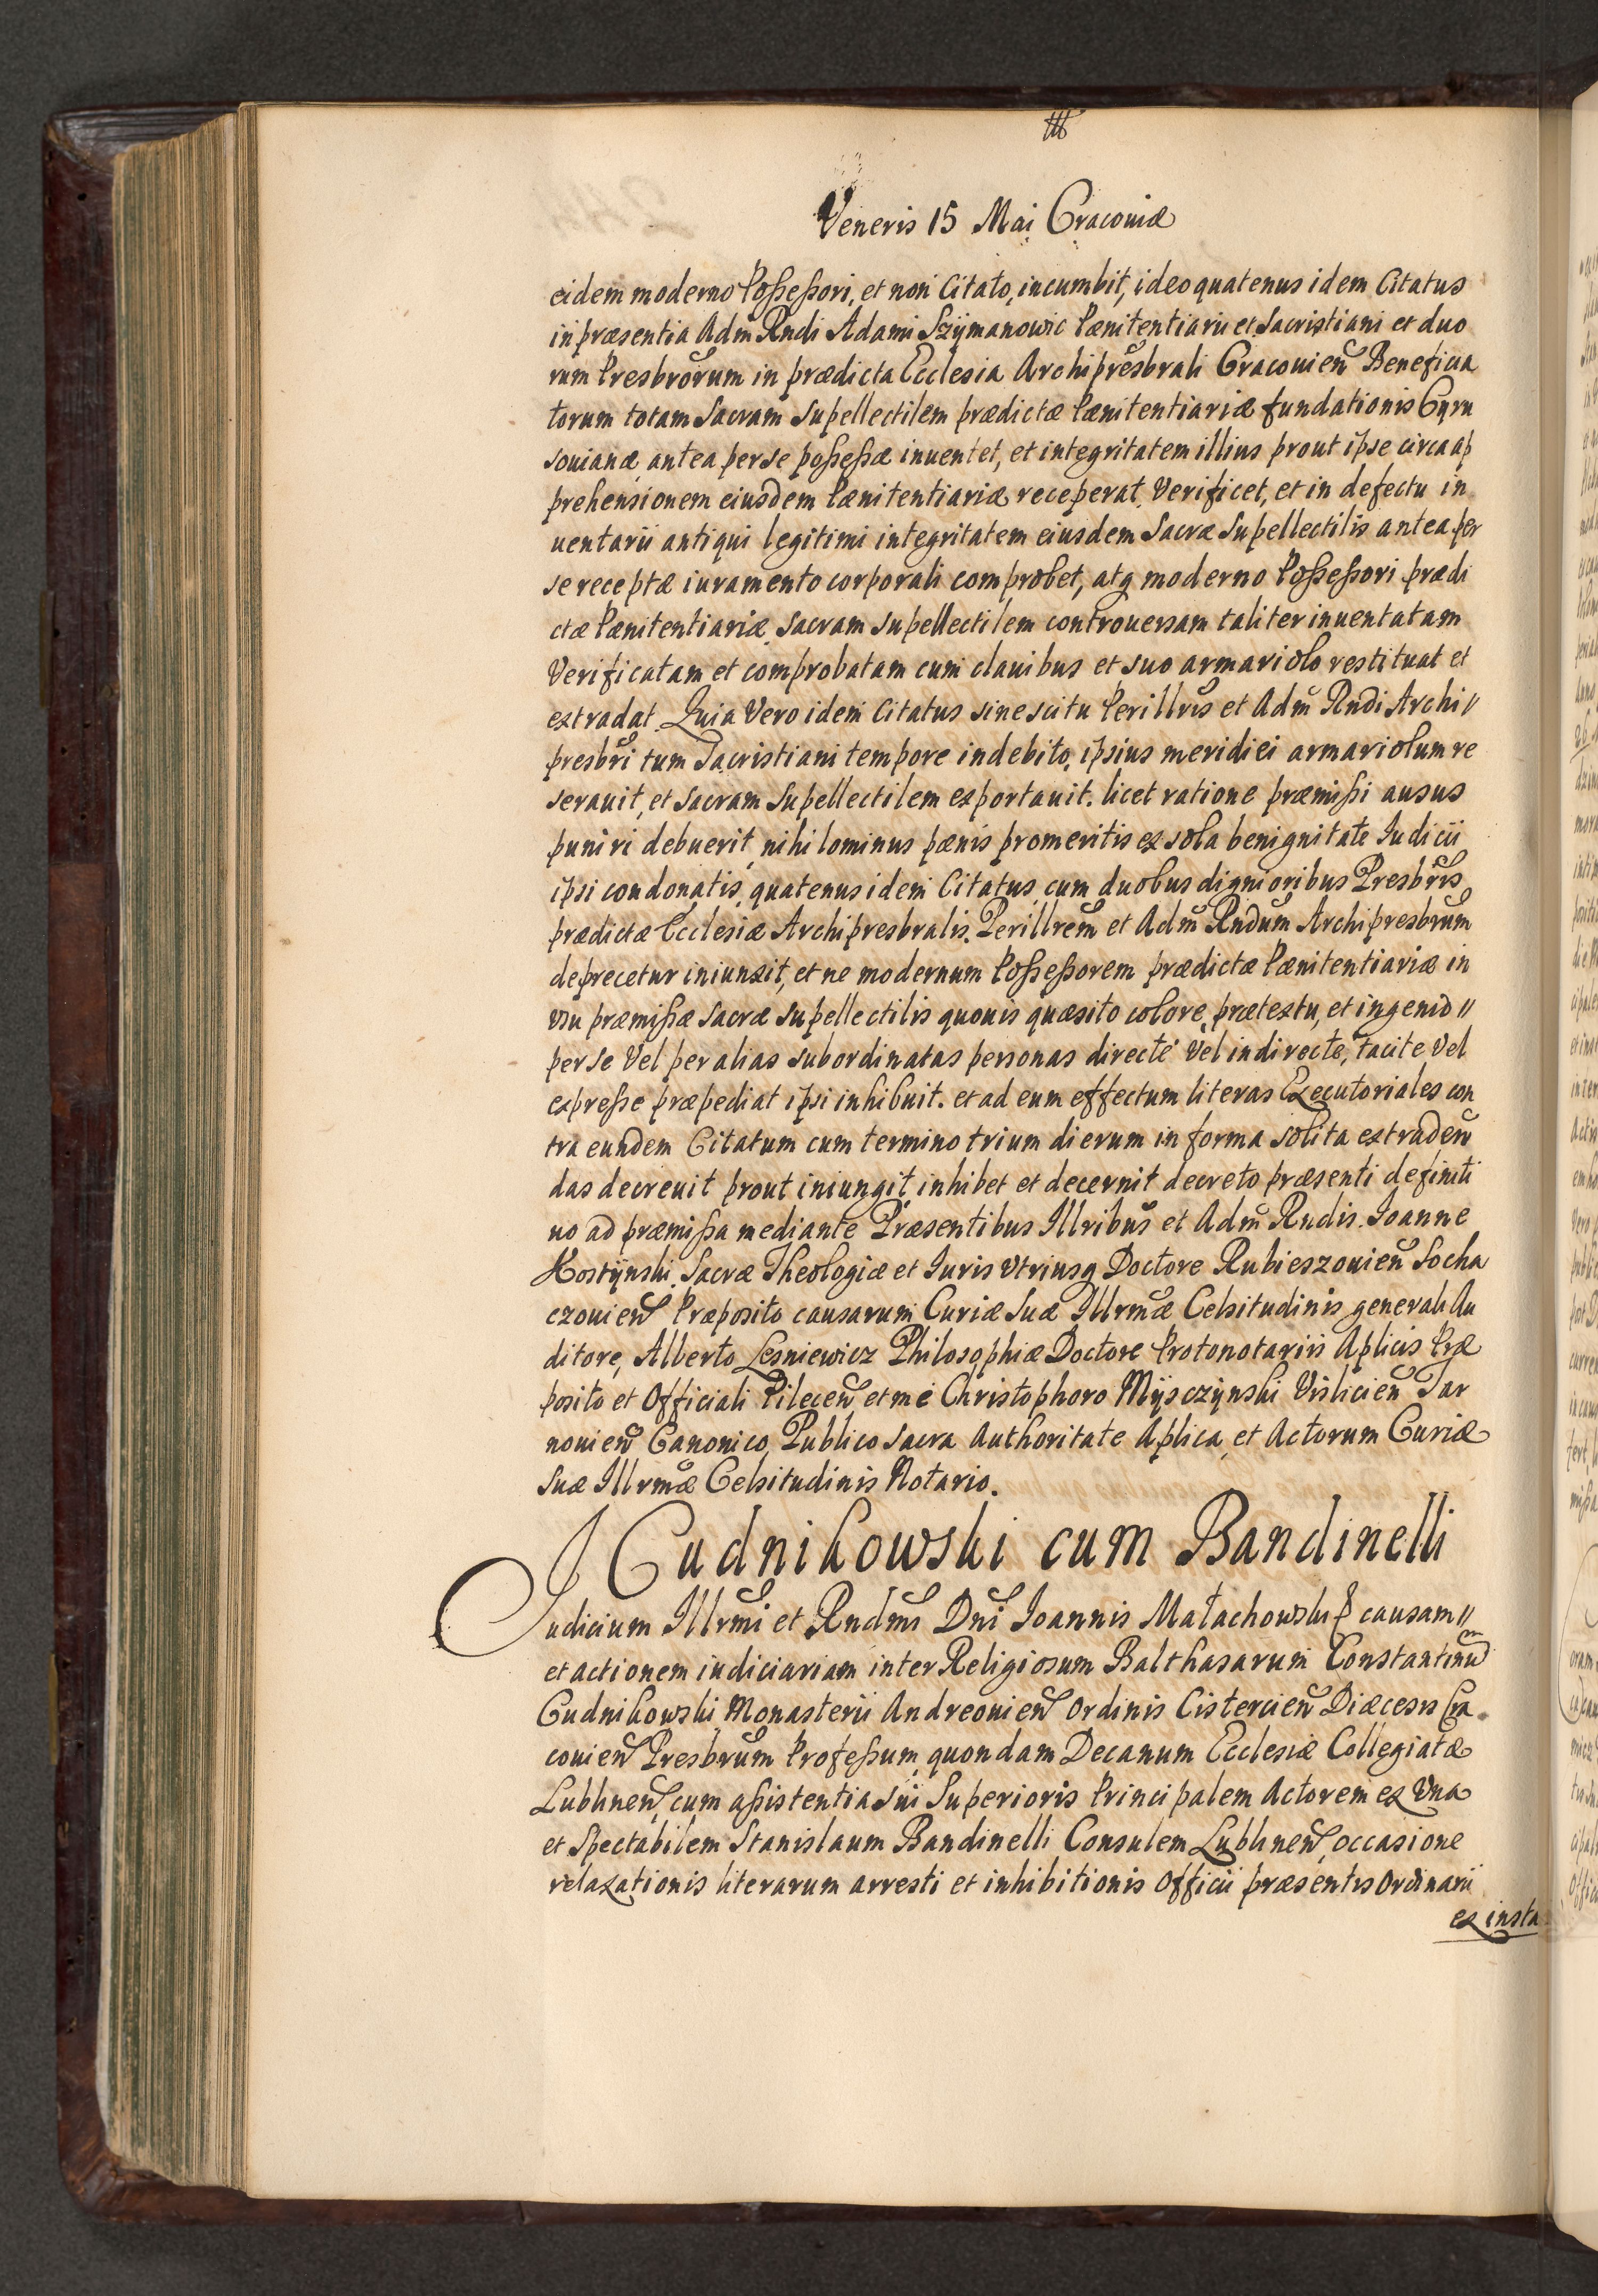 Veneris 15 Mai Cracouiæ
eidem moderno Poßeßori, et non Citato, incumbit, ideo quatenus idem Citatus
in præsentia Adm Rndi Adami Szÿmanowic Pænitentiarii et Sacristiani et duo
rum Presbrorum in prædicta Ecclesia Archipresbrali Cracouien Beneficia
torum totam Sacram Supellectilem prædictæ Pænitentiariæ fundationis Gyru
souianæ antea per se poßeßæ inuentet, et integritatem illius prout ipse circa ap
prehensionem eiusdem Pænitentiariæ receperat Verificet, et in defectu in
uentarii antiqui legitimi integritatem eiusdem Sacræ Supellectilis antea per
se receptæ iuramento corporali comprobet, atq moderno Poßeßori prædi
ctæ Pænitentiariæ Sacram supellectilem controuersam taliter inuentatam
Verificatam et comprobatam cum clauibus et suo armariolo restituat et
extradat Quia Vero idem Citatus sine scitu Perillris et Adm Rndi Archi//
presbri tum Sacristiani tempore indebito, ipsius meridiei armariolum re
serauit, et Sacram Supellectilem exportauit. licet ratione præmißi ausus
puniri debuerit, nihilominus pænis promeritis ex sola benignitate Iudicii
ipsi condonatis, quatenus idem Citatus cum duobus dignioribus Presbris
prædictæ Ecclesiæ Archipresbralis. Perillrem et Adm Rndum Archipresbrum
deprecetur iniunxit, et ne modernum Poßeßorem prædictæ Pænitentiariæ in
vsu præmißæ Sacræ Supellectilis quouis quæsito colore, prætextu, et ingenio //
per se Vel per alias subordinatas personas directe Vel indirecte, tacite Vel
expreße præpediat ipsi inhibuit. et ad eum effectum literas Executoriales con
tra eundem Citatum cum termino trium dierum in forma solita extraden
das decreuit prout iniungit, inhibet et decernit decreto præsenti definiti
uo ad præmißa mediante Præsentibus Illribus et Adm Rndis Ioanne
Hostÿnski Sacræ Theologiæ et Iuris vtriusq Doctore Rubieszouien Socha
czouien Præposito causarum Curiæ Suæ Illrmæ Celsitudinis generali Au
ditore, Alberto Lesniewicz Philosophiæ Doctore Protonotariis Aplicis Præ
posito et Officiali Pilecen et me Christophoro Mÿsczÿnski Vislicien Tar
nouien Canonico, Publico Sacra Authoritate Aplica et Actorum Curiæ
Suæ Illrmæ Celsitudinis Notario.
Cudnikowski cum Bandinelli
Iudicium Illrmi et Rndmi Dni Ioannis Małachowski causam //
et actionem iudiciariam inter Religiosum Balthasarum Constantinum
Cudnikowski Monasterii Andreouien Ordinis Cistercien Diæcesis Cra
couien Presbrum Profeßum, quondam Decanum Ecclesiæ Collegiatæ
Lublinen, cum aßistentia sui Superioris Principalem Actorem ex Vna
et Spectabilem Stanislaum Bandinelli Consulem Lublinen, occasione
relaxationis literarum arresti et inhibitionis Officii præsentis Ordinarii
ex insta